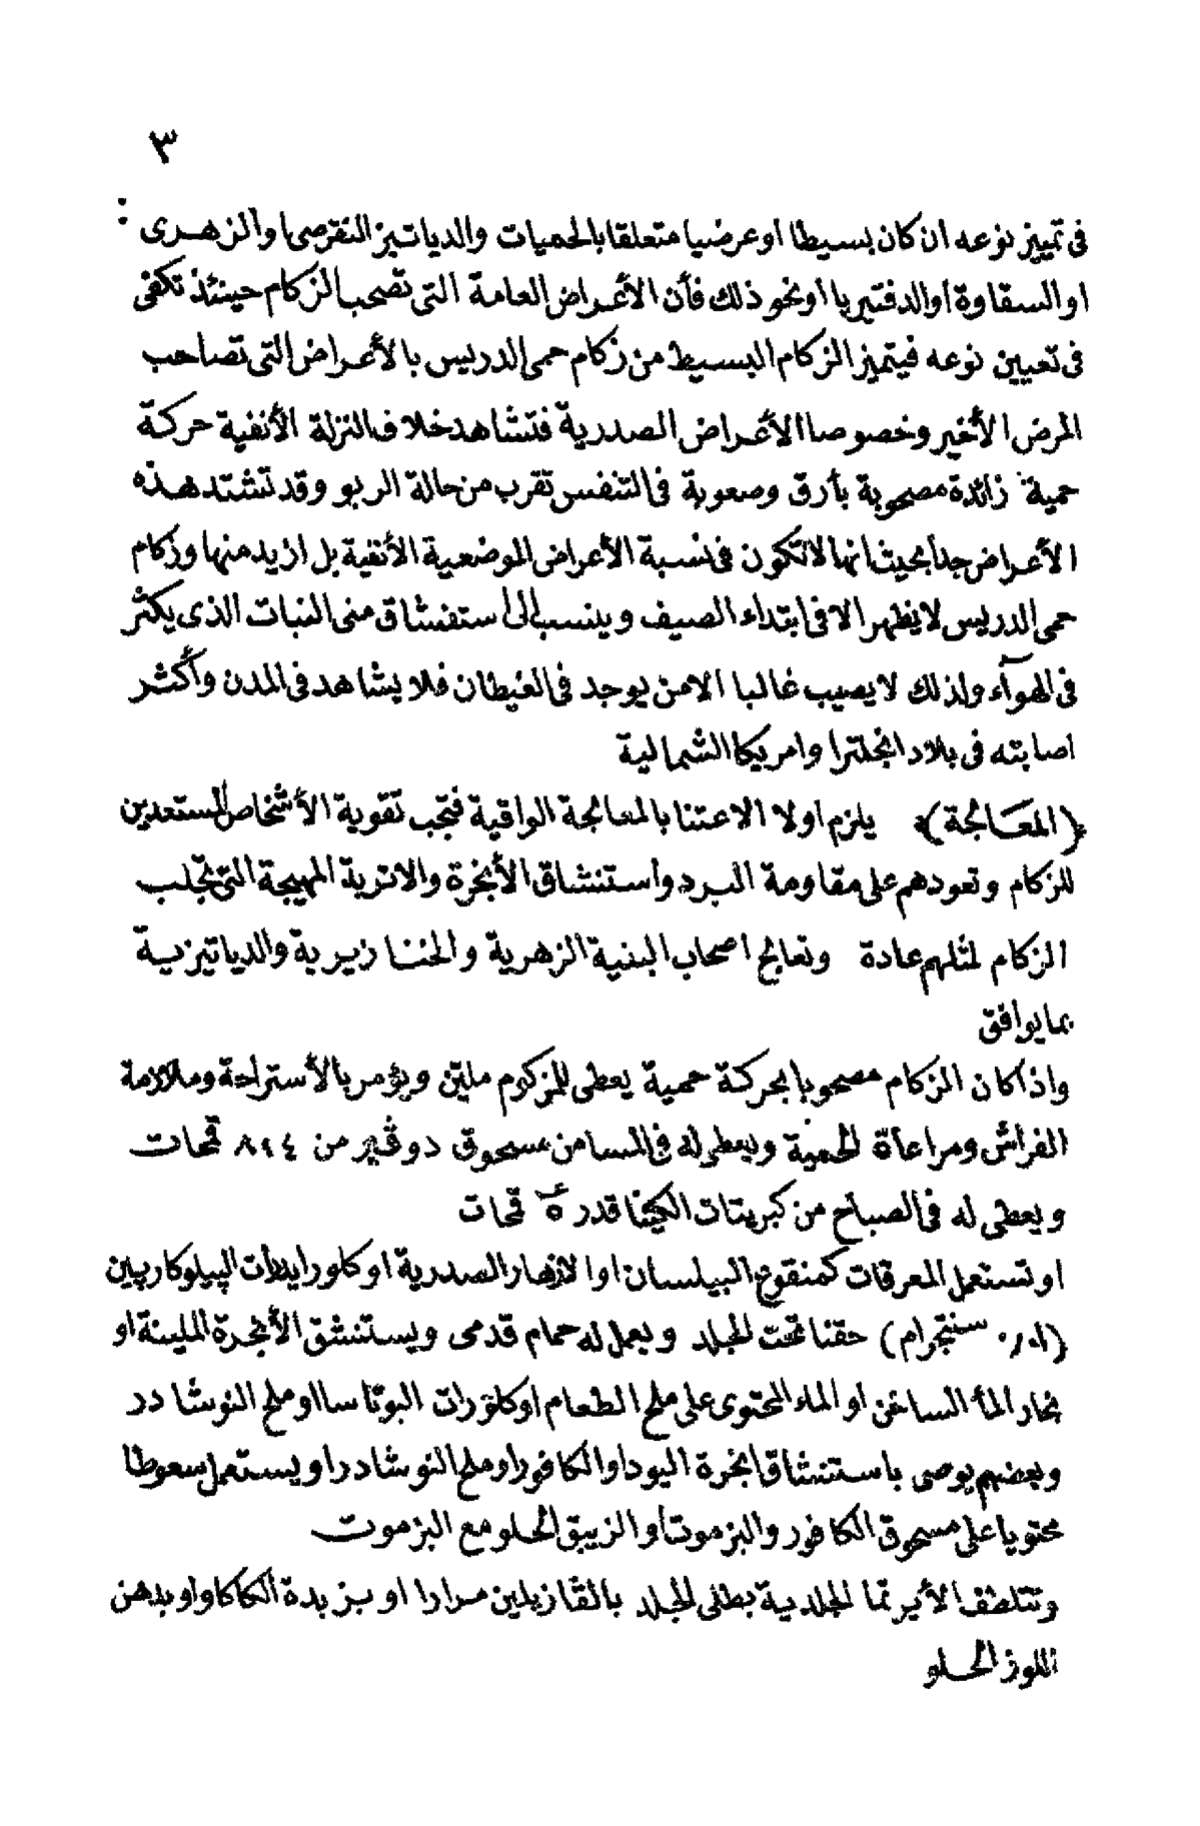 ٣
فى تمييز نوعه ان كان بسيطا او عرضيا متعلقا بالحميات والدياتيز النقرصى او الزهرى
او السقاوة او الدفتيريا او نحو ذلك فأن الأعراض العامة التى تصحب الزكام حينئذ تكفى
فى تعيين نوعه فيتميز الزكام البسيط من زكام حمى الدريس بالأعراض التى تصاحب
المرض الأخير وخصوصا الأعراض الصدرية فتشاهد خلاف النزلة الأنفية حركة
حمية زائدة مصحوبة بأرق وصعوبة فى التنفس تقرب من حالة الربو وقد تشتد هذه
الأعراض جدا بحيث انها لا تكون فى نسبة الأعراض الموضعية الأنفية بل ازيد منها وزكام
حمى الدريس لا يظهر الا فى ابتداء الصيف وينسب الى استنشاق منى النبات الذى يكثر
فى الهوآء ولذلك لا يصيب غالبا الا من يوجد فى الغيطان فلا يشاهد فى المدن وأكثر
اصابته فى بلاد انجلترا وامريكا الشمالية
﴿المعالجة﴾ يلزم اولا الاعتنا بالمعالجة الواقية فتجب تقوية الأشخاص المستعدين
للزكام وتعودهم على مقاومة البرد واستنشاق الأبخرة والاتربة المهيجة التى تجلب
الزكام لمثلهم عادة وتعالج اصحاب البنية الزهرية والخنازيرية والدياتيزية
بما يوافق
واذا كان الزكام مصحوبا بحركة حمية يعطى للمزكوم ملين ويؤمر بالأستراحة وملازمة
الفراش ومراعاة الحمية ويعطى له فى المسا من مسحوق دوڤير من ٤ ٨ قمحات
ويعطى له فى الصباح من كبريتات الكينا قدر ٥ قمحات
او تستعمل المعرقات كمنقوع البيلسان او الازهار الصدرية او كلورايدرات الپيلوكارپين
(٠٫٠١ سنتجرام) حقنا تحت الجلد ويعمل له حمام قدمى ويستنشق الأبخرة الملينة او
بخار المأ الساخن او الماء المحتوى على ملح الطعام او كلورات البوتاسا او ملح النوشادر
وبعضهم يوصى باستنشاق ابخرة اليود او الكافور او ملح النوشادر او يستعمل سعوطا
محتويا على مسحوق الكافور والبزموت او الزيبق الحلو مع البزموت
وتتلطف الأيرتما الجلدية بطلى الجلد بالڤازيلين مرارا او بزبدة الكاكاو او بدهن
اللوز الحلو